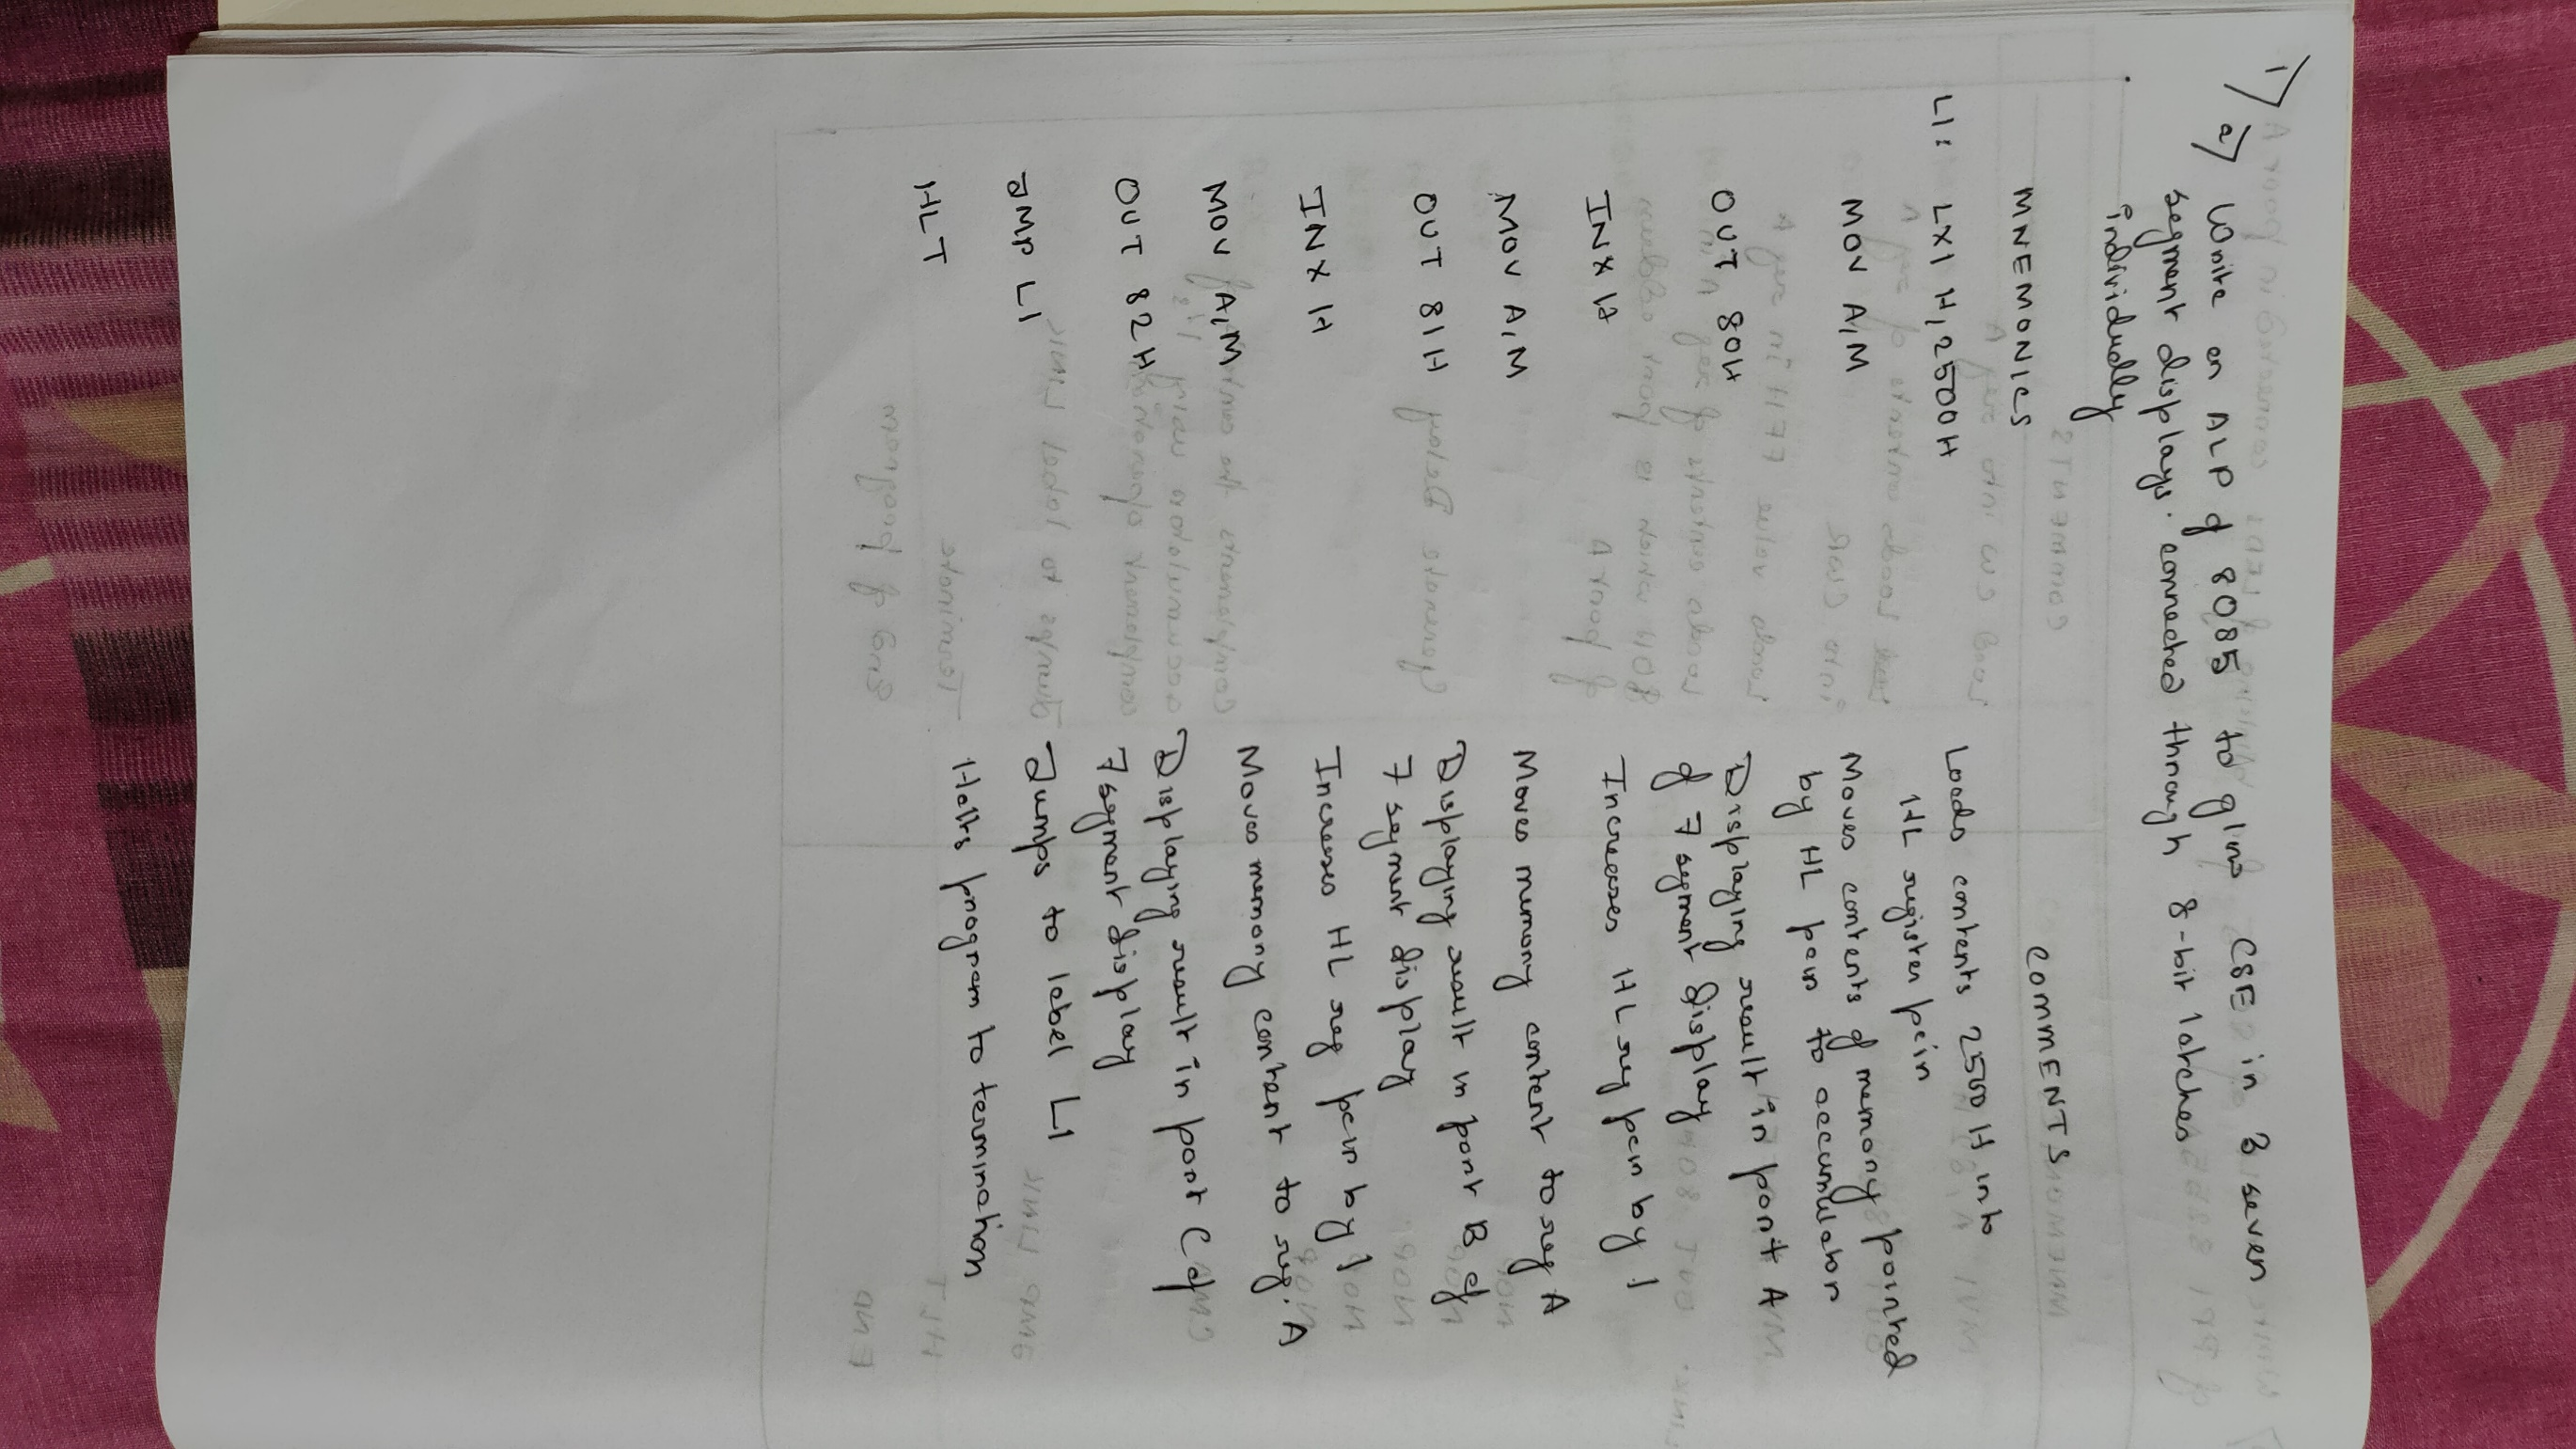 1) a) Write an ALP of 8085 to glow CSE in 3 seven
segment displays. connected through 8-bit latches
individually
MNEMONICS COMMENTS
L1: LXI H,2500H Loads contents 2500H into
HL register pair
MOV A,M Moves contents of memory pointed
by HL pair to accumulator
OUT 80H Displaying result in port A
of 7 segment display
INX H Increases HL reg pair by 1
MOV A,M Moves memory content to reg A
OUT 81H Displaying result in port B of
7 segment display
INX H Increases HL reg pair by 1
MOV A,M Moves memory content to reg. A
OUT 82H Displaying result in port C of
7 segment display
JMP L1 Jumps to label L1
HLT Halts program to termination